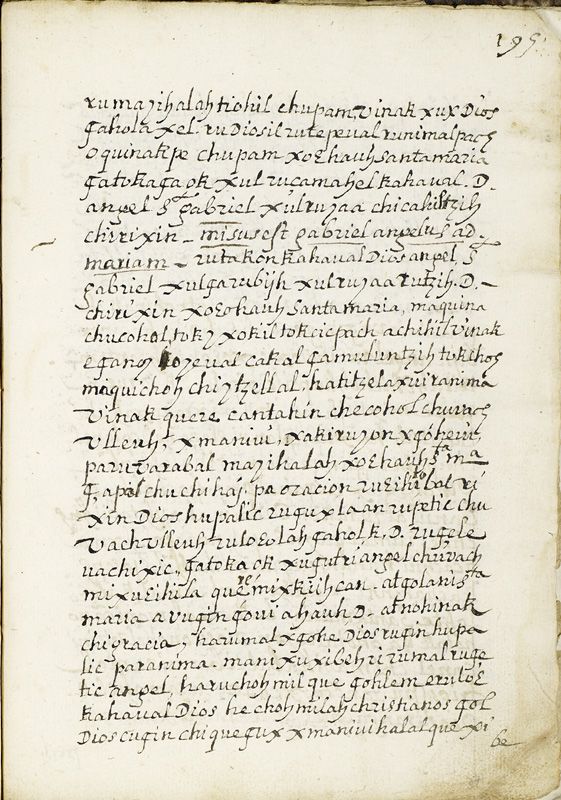 195
rumaɀihalah tiohil chupam, vinak xux Dios
gahola xel. ru Diosil rutepeval runimal pach
oquinakpe chupam xoƐhauh santamaria
gatokaga ok xul rucamahel kahaval. D.
angel S. gabriel xulruyaa chicahiltzih
chirixin – misus est gabriel angelus ad
mariam – rutakon kahaval Dios angel, S
gabriel xulgarubijh xulruyaa rutzih. D. –
chirixin xoƐohauh santamaria, maquina
chucohol, toky xokil tokcicpach achihil vinak
eganoy
maquichoh chiytzellal, hatitzelaxuiranima
vinak quere cantahin checohol chuvach
vlleuh, xmaniui, xakiruyon xgoheui,
paruvarabal mayihalah xoƐhauh Sta ma
chuchihaj. pa oracion ruƐihibal ri
xin Dios hupalic rugux laan rupetic chu
vach vlleuh ruloƐolah gaholk, D. rugele
vachixic, gatoka ok xugutri angel chuvach
mixuƐihila quere mixkiihcan. at golani Sta
maria avugin goui ahauh D. at nohinak
chigracia, harumal xgohe Dios rugin hupa
lic paranima. mani xuxibeh ri rumal ruge
tic angel, haruchoh mil que gohlem eruloƐ
kahaval Dios he choh milah christianos gol
Dios cugin chiquegux xmaniui halal que xi
be